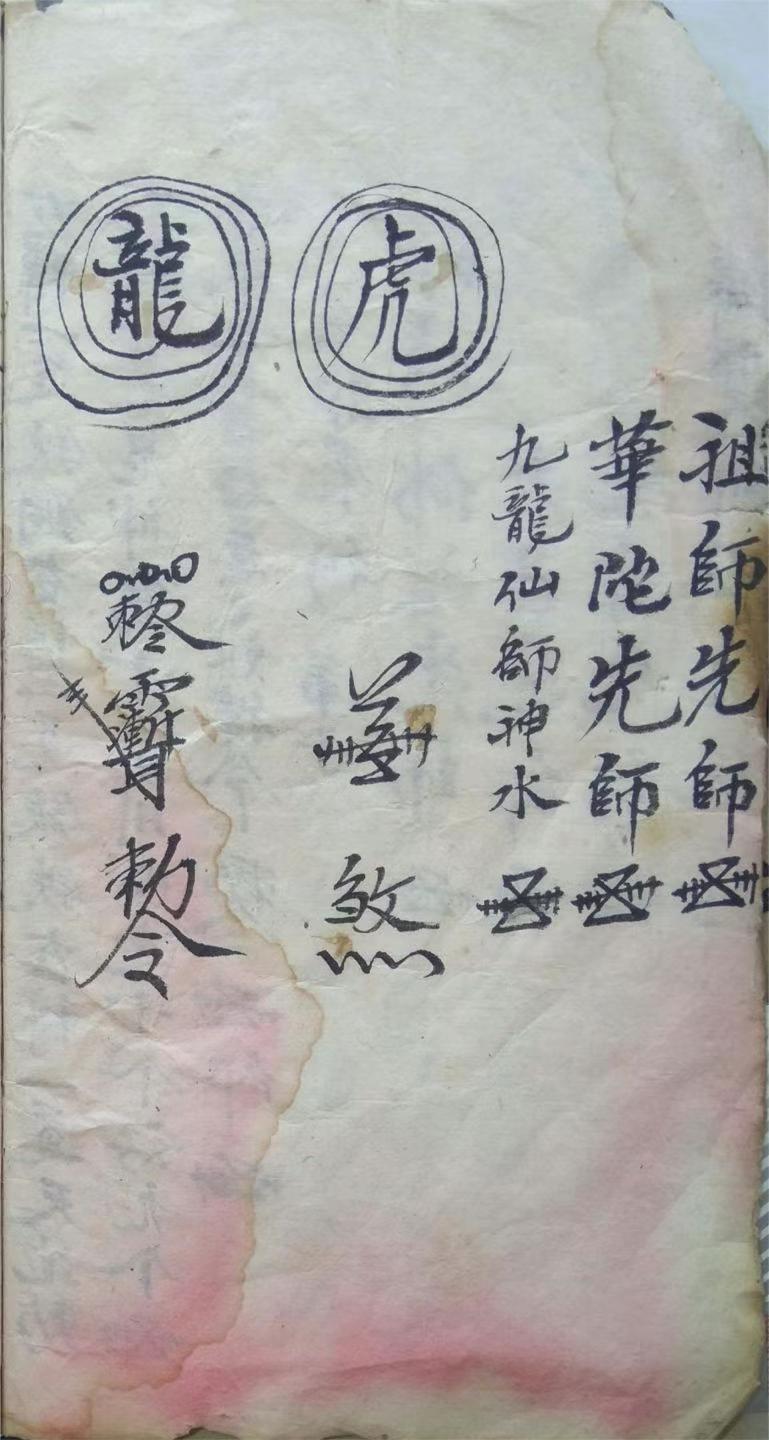 祖師先師
華陀先師
九龍仙師神水
虎
煞
龍
勅令